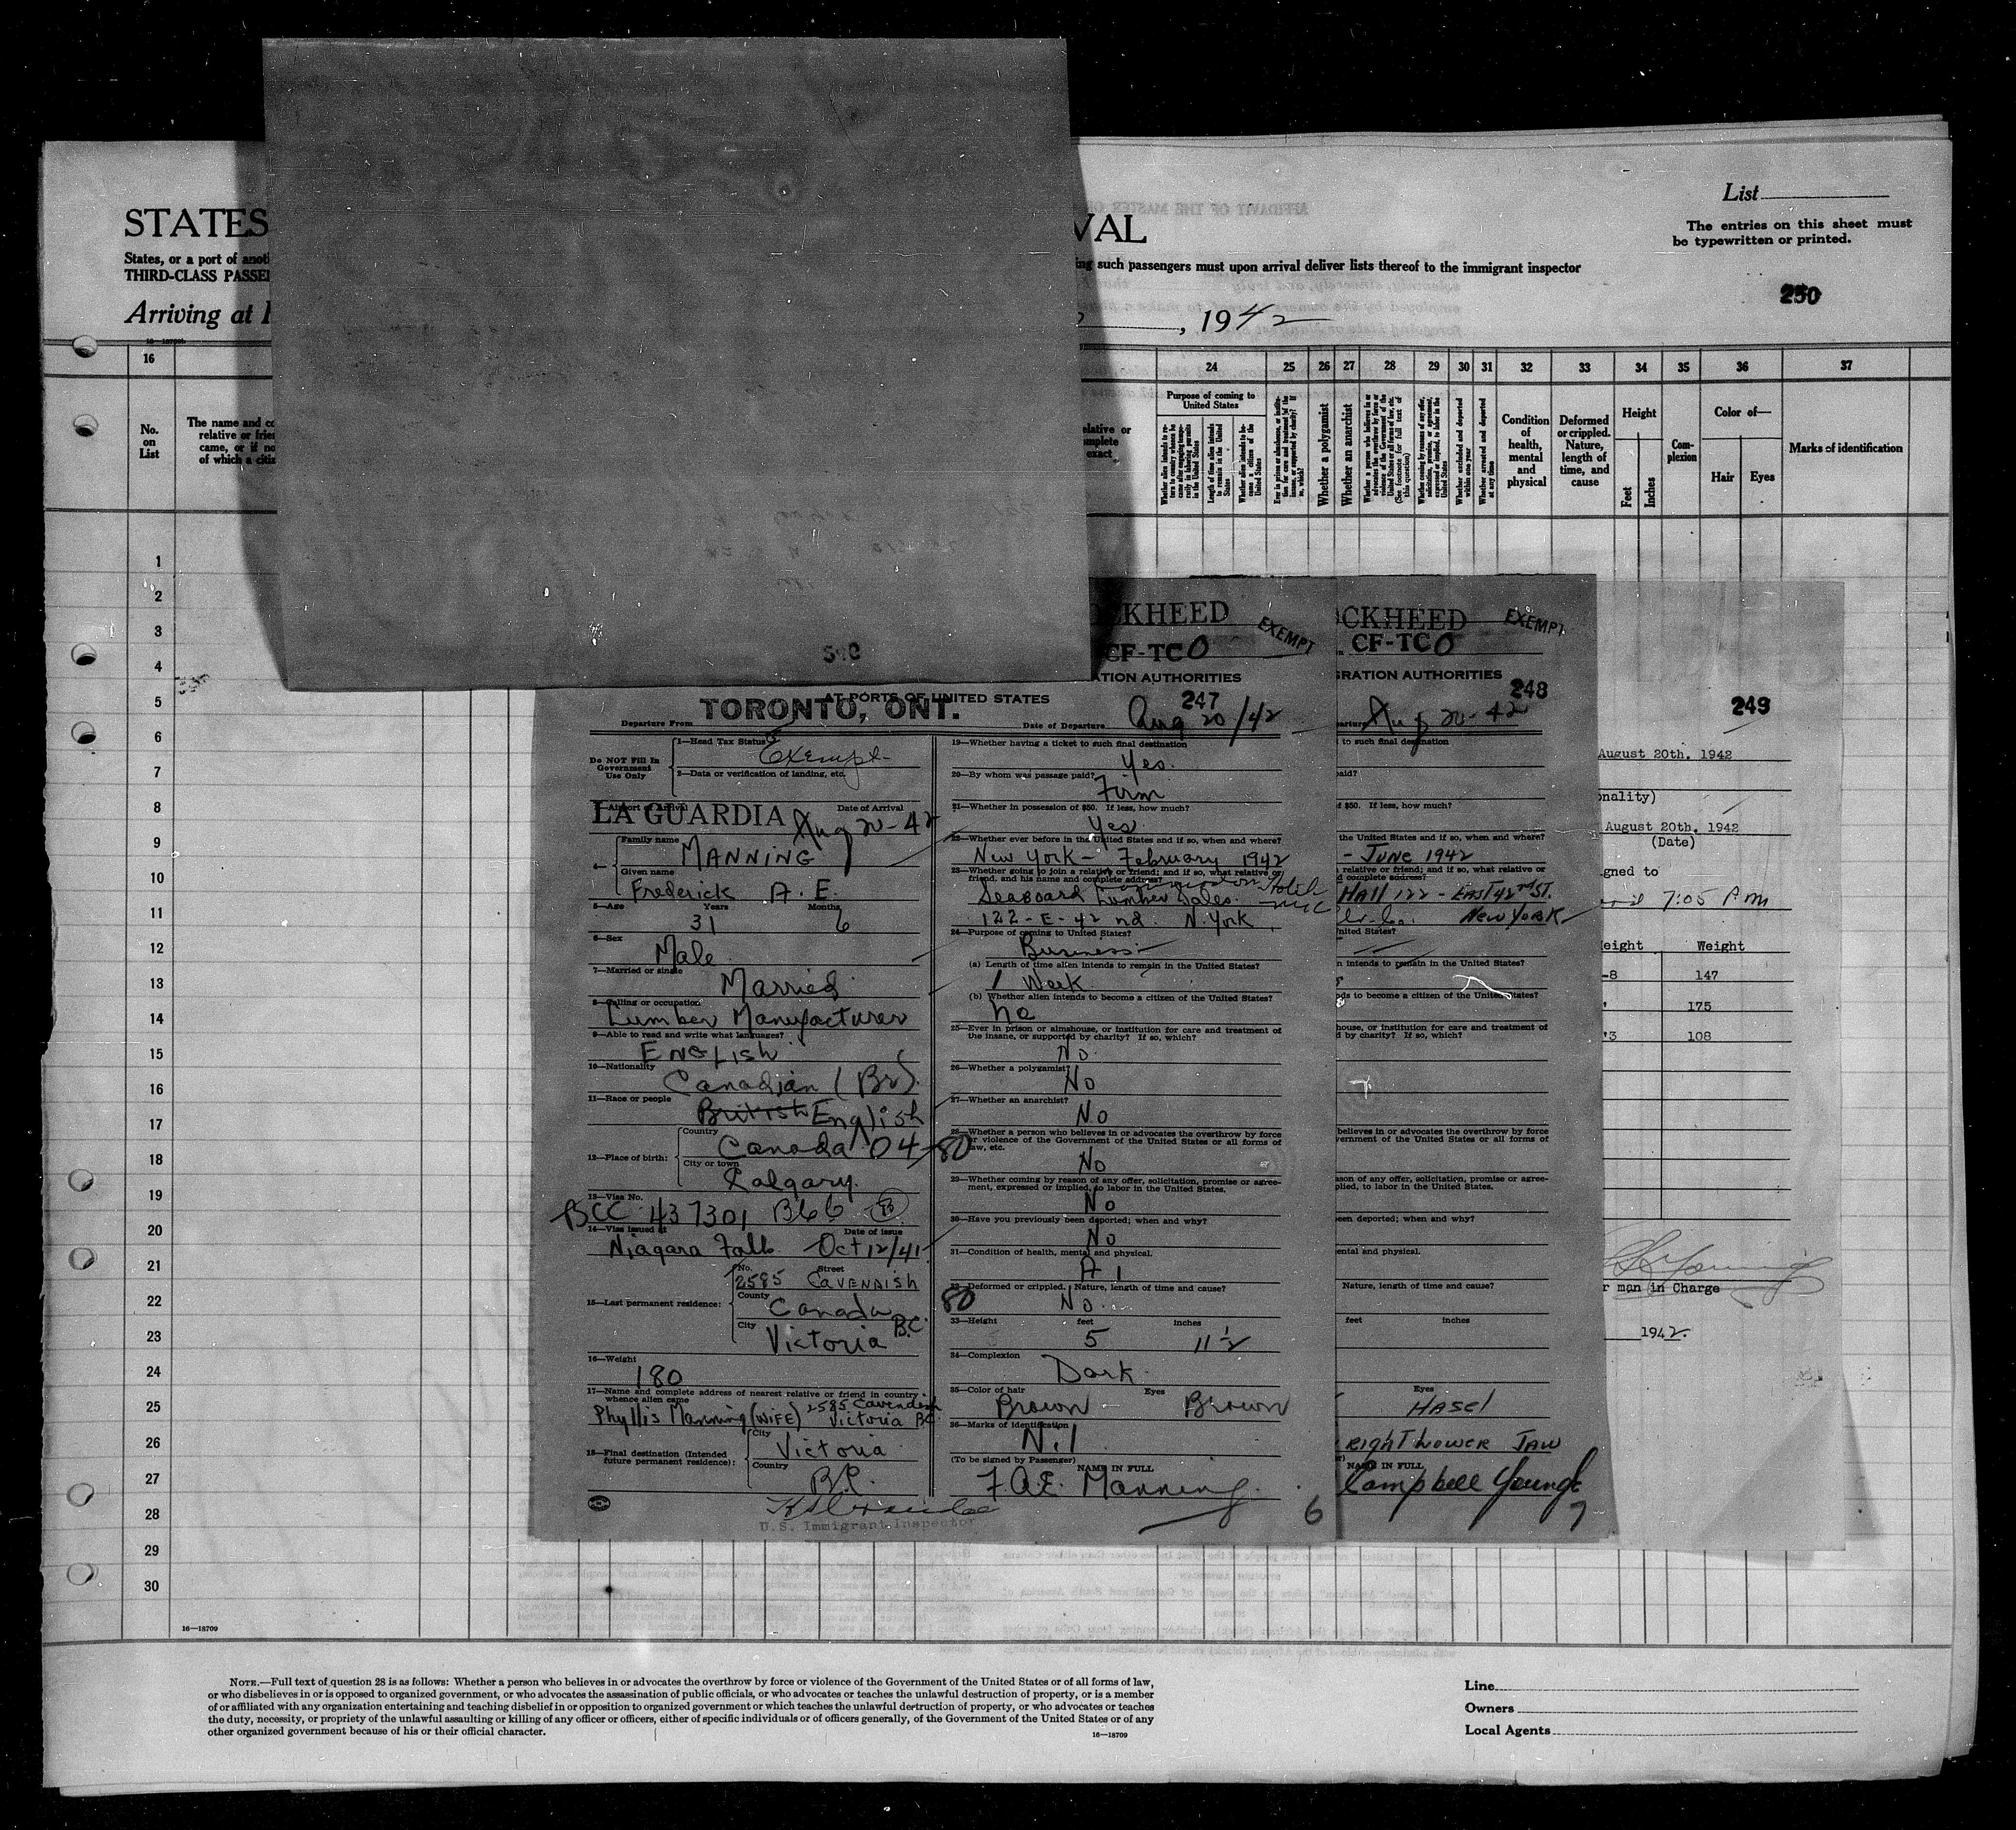 STATES
VAL
List
The entries on this sheet must
be typewritten or printed.
States, or a port of anot
ing such passengers must upon arrival deliver lists thereof to the immigrant inspector
THIRD-CLASS PASSE
250
Arriving at
, 1942
16
24
25
26
27
28
29
30
31
32
33
34
35
36
37
No.
on
List
The name and co
relative or frie
came, or if no
of which a citi
elative or
mplete
exact
Purpose of coming to
United States
Whether a polygamist
Whether an anarchist
Condition
of
health,
mental
and
physical
Deformed
or crippled.
Nature,
length of
time, and
cause
Height
Feet
Inches
Com-
plexion
Color of—
Hair
Eyes
Marks of identification
1
2
3
4
5
6
7
8
9
10
11
12
13
14
15
16
17
18
19
20
21
22
23
24
25
26
27
28
29
30
16—18709
CKHEED
EXEMPT
CF-TCO
ATION AUTHORITIES
AT PORTS OF UNITED STATES
247
Departure From TORONTO, ONT.
Date of Departure Aug 20/42
Do NOT Fill In
Government
Use Only
1—Head Tax Status
Exempt
2—Data or verification of landing, etc.
3—Airport of Arrival
Date of Arrival
LA GUARDIA Aug 20-42
4—
Family name
MANNING
Given name
Frederick A. E.
5—Age
Years
Months
31
6
6—Sex
Male
7—Married or single
Married
8—Calling or occupation
Lumber Manufacturer
9—Able to read and write what languages?
ENGLISH
10—Nationality
Canadian (Br).
11—Race or people
British English
12—Place of birth:
Country
Canada 04-80
City or town
Calgary.
13—Visa No.
BCC 437301 B66
14—Visa issued at
Date of issue
Niagara Falls Oct 12/41
15—Last permanent residence:
No.
Street
2585 CAVENDISH
County
Canada
City
Victoria B.C.
16—Weight
180
17—Name and complete address of nearest relative or friend in country
whence alien came
Phyllis Manning (WIFE) 2585 Cavendish
Victoria BC.
18—Final destination (Intended
future permanent residence):
City
Victoria
Country
B.C.
U.S. Immigrant Inspector
19—Whether having a ticket to such final destination
Yes.
20—By whom was passage paid?
Firm
21—Whether in possession of $50. If less, how much?
Yes
22—Whether ever before in the United States and if so, when and where?
New York - February 1942
23—Whether going to join a relative or friend; and if so, what relative or
friend, and his name and complete address?
Seaboard Lumber Sales.
122-E-42 nd. N. York
24—Purpose of coming to United States?
Business
(a) Length of time alien intends to remain in the United States?
1 Week
(b) Whether alien intends to become a citizen of the United States?
no
25—Ever in prison or almshouse, or institution for care and treatment of
the insane, or supported by charity? If so, which?
No.
26—Whether a polygamist?
No
27—Whether an anarchist?
No
28—Whether a person who believes in or advocates the overthrow by force
or violence of the Government of the United States or all forms of
law, etc.
No
29—Whether coming by reason of any offer, solicitation, promise or agree-
ment, expressed or implied, to labor in the United States.
No
30—Have you previously been deported; when and why?
No
31—Condition of health, mental and physical.
A 1
32—Deformed or crippled. Nature, length of time and cause?
80
No.
33—Height
feet
inches
5
11½
34—Complexion
Dark
35—Color of hair
Eyes
Brown
Brown
36—Marks of identification
Nil
(To be signed by Passenger)
NAME IN FULL
F.A.E. Manning.
6
CKHEED
EXEMPT
CF-TCO
GRATION AUTHORITIES
248
Aug 20-42
to such final destination
paid?
of $50. If less, how much?
the United States and if so, when and where?
- JUNE 1942
relative or friend; and if so, what relative or
d complete address?
HAll 122 - EAST 42nd ST.
NEW YORK
United States?
n intends to remain in the United States?
ds to become a citizen of the United States?
house, or institution for care and treatment of
d by charity? If so, which?
believes in or advocates the overthrow by force
vernment of the United States or all forms of
ason of any offer, solicitation, promise or agree-
plied, to labor in the United States.
een deported; when and why?
ental and physical.
Nature, length of time and cause?
feet
inches
Eyes
HASEl
RIGHT LOWER JAW
NAME IN FULL
Campbell Young
7
249
August 20th, 1942
onality)
August 20th, 1942
(Date)
gned to
7:05 P m
eight
Weight
-8
147
175
'3
108
r man in Charge
1942.
NOTE.—Full text of question 28 is as follows: Whether a person who believes in or advocates the overthrow by force or violence of the Government of the United States or of all forms of law,
or who disbelieves in or is opposed to organized government, or who advocates the assassination of public officials, or who advocates or teaches the unlawful destruction of property, or is a member
of or affiliated with any organization entertaining and teaching disbelief in or opposition to organized government or which teaches the unlawful destruction of property, or who advocates or teaches
the duty, necessity, or propriety of the unlawful assaulting or killing of any officer or officers, either of specific individuals or of officers generally, of the Government of the United States or of any
other organized government because of his or their official character.
16—18709
Line
Owners
Local Agents